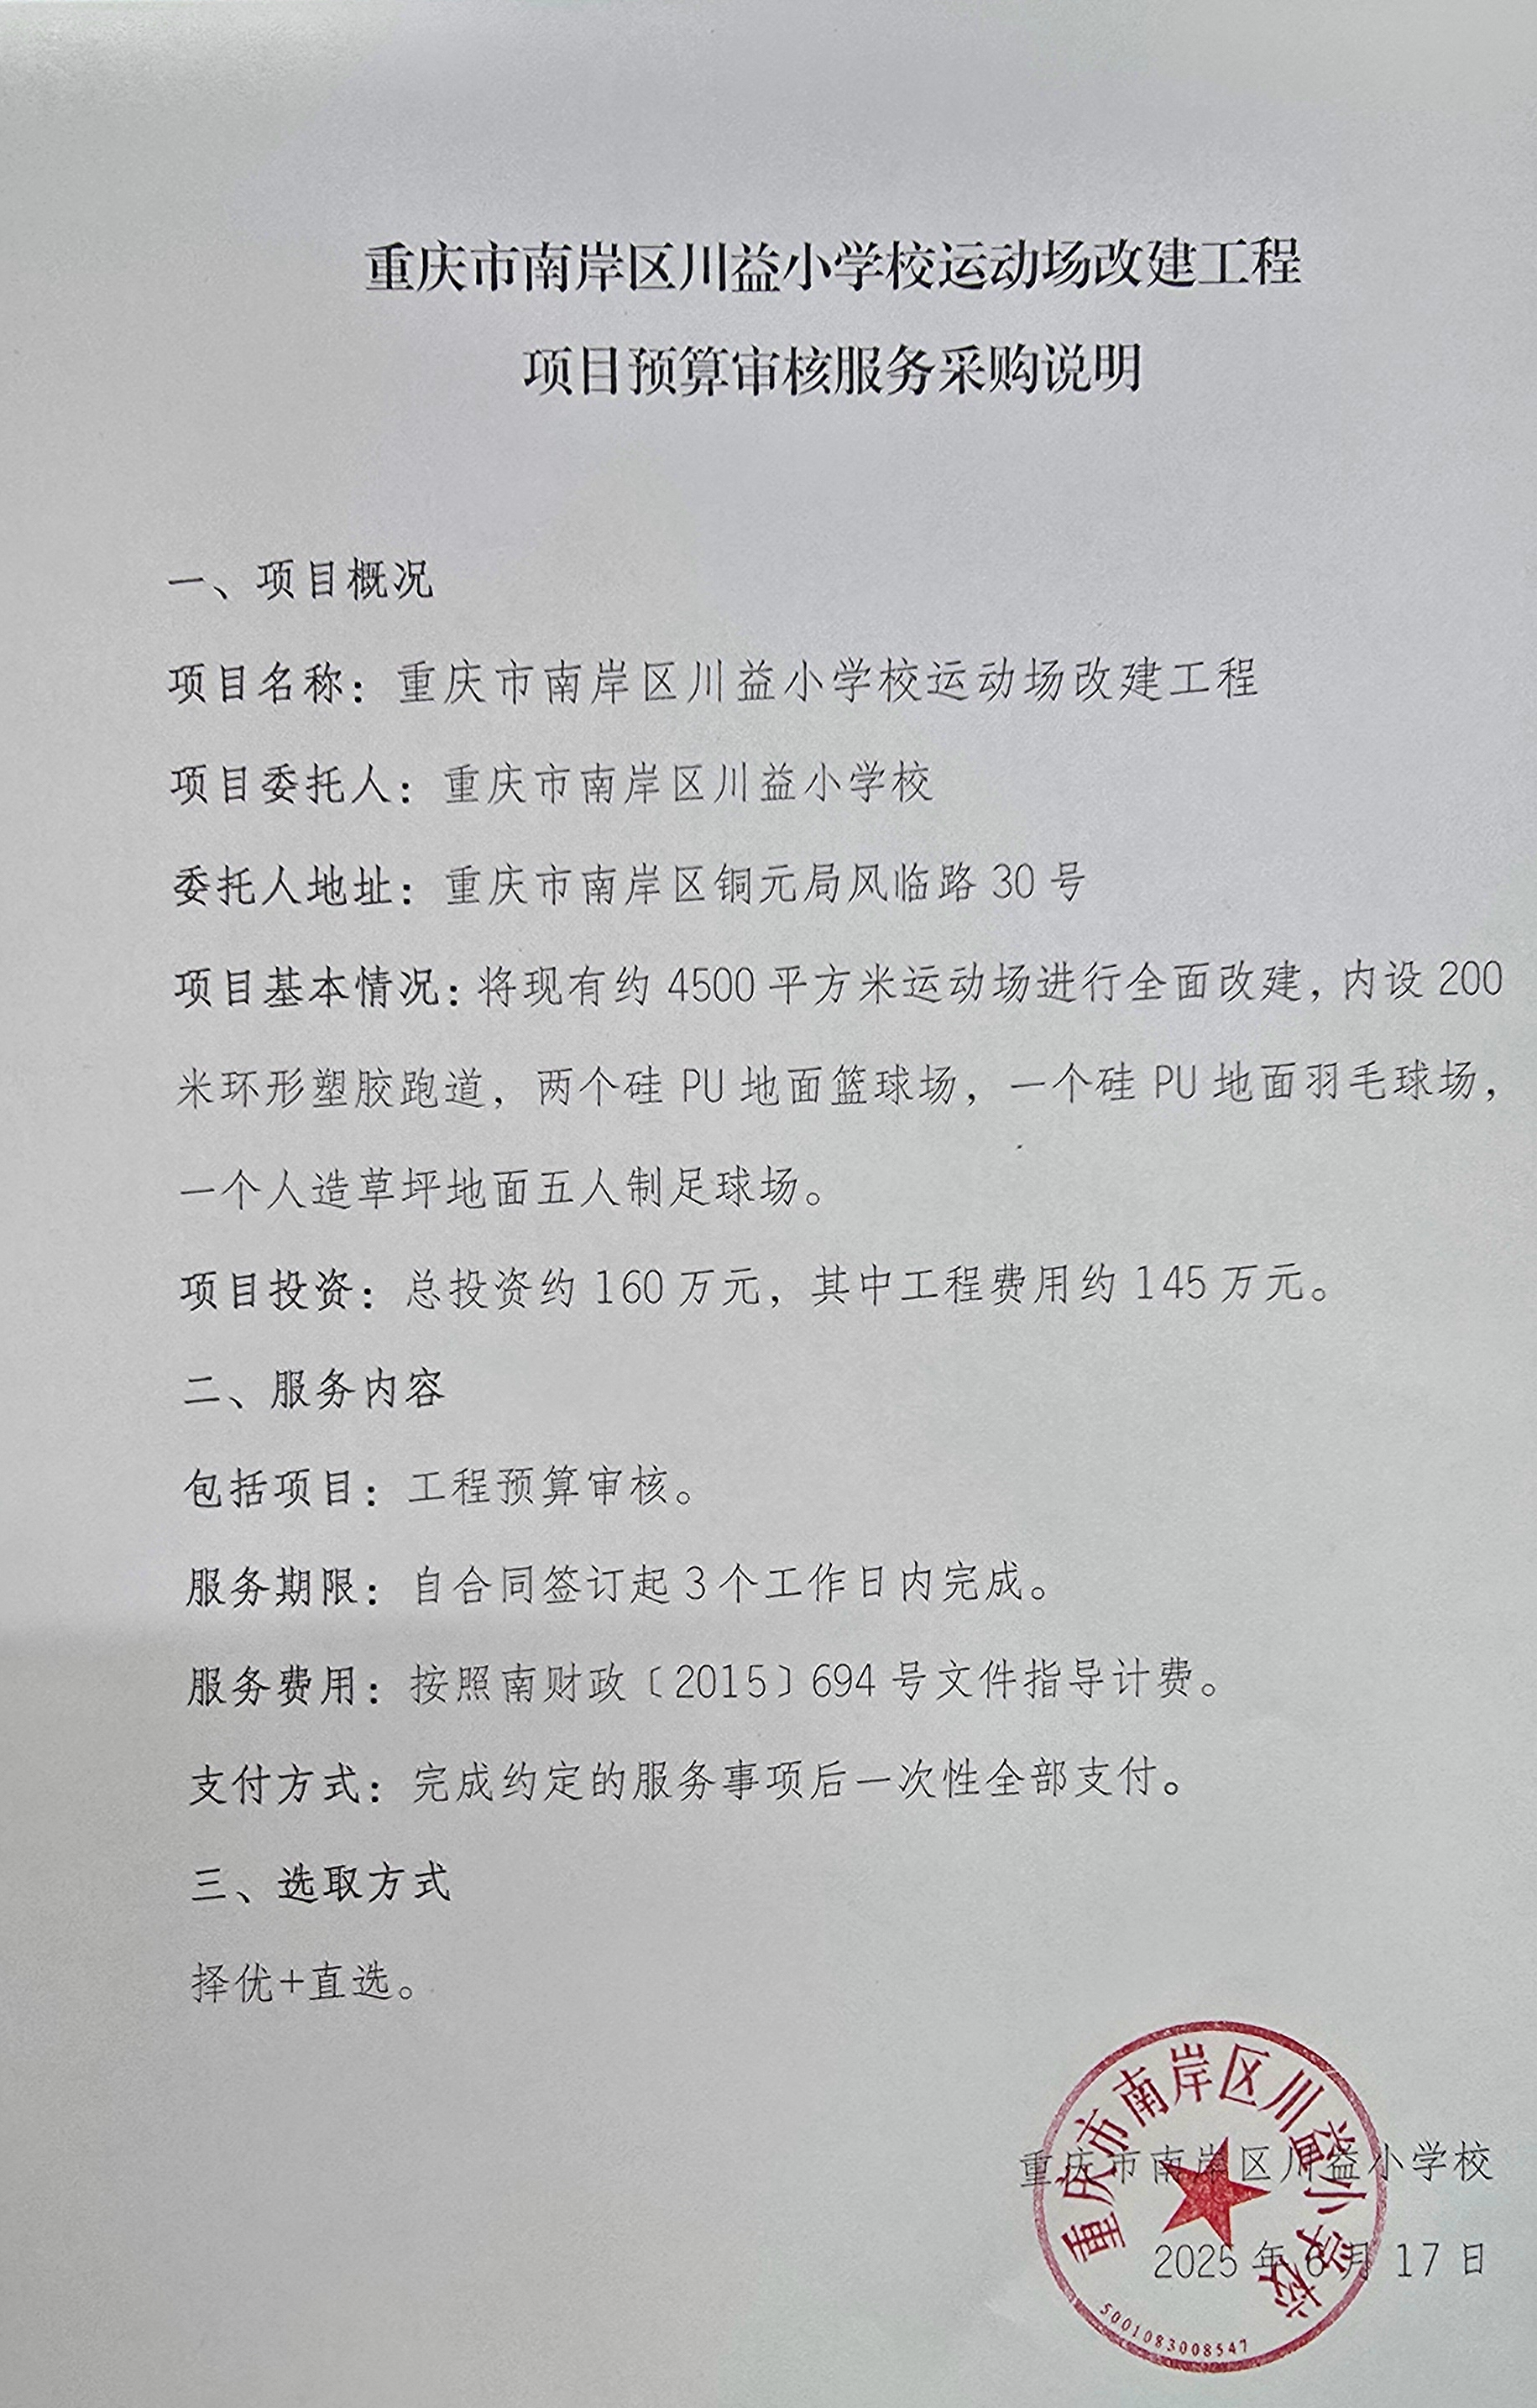 重庆市南岸区川益小学校运动场改建工程
项目预算审核服务采购说明
一、项目概况
项目名称：重庆市南岸区川益小学校运动场改建工程
项目委托人：重庆市南岸区川益小学校
委托人地址：重庆市南岸区铜元局风临路 30 号
项目基本情况：将现有约 4500 平方米运动场进行全面改建，内设 200
米环形塑胶跑道，两个硅 PU 地面篮球场，一个硅 PU 地面羽毛球场，
一个人造草坪地面五人制足球场。
项目投资：总投资约 160 万元，其中工程费用约 145 万元。
二、服务内容
包括项目：工程预算审核。
服务期限：自合同签订起 3 个工作日内完成。
服务费用：按照南财政〔2015〕694 号文件指导计费。
支付方式：完成约定的服务事项后一次性全部支付。
三、选取方式
择优+直选。
重庆市南岸区川益小学校
2025 年 6 月 17 日
重庆市南岸区川益小学校
5001083008547